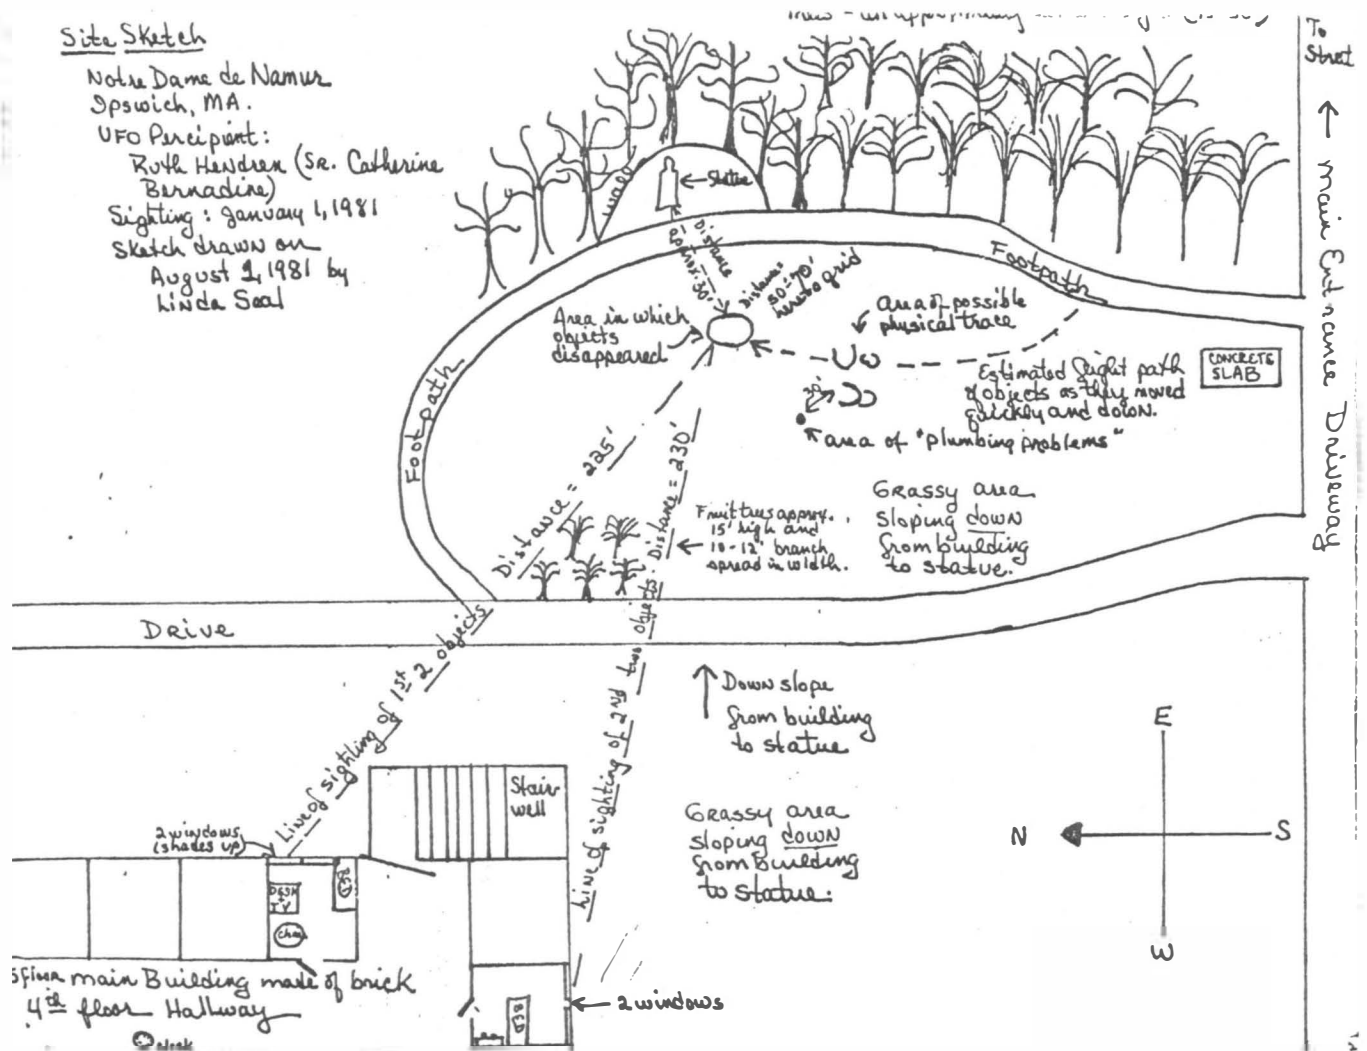 Site Sketch
Notre Dame de Namur
Ipswich, MA.
UFO Percipient:
Ruth Hendren (Sr. Catherine
Bernadine)
Sighting: January 1, 1981
Sketch drawn on
August 1, 1981 by
Linda Seal
To
Street
Main Entrance Driveway
Wall
Statue
Distance
approx. 30'
Distance=
50-70'
here to grid
Footpath
Area in which
objects
disappeared
area of possible
physical trace
Estimated flight path
of objects as they moved
quickly and down.
CONCRETE
SLAB
30'
area of "plumbing problems"
Footpath
Distance = 225'
Distance = 230'
Fruit trees approx.
15' high and
10-12' branch
spread in width.
Grassy area
sloping down
from building
to statue.
Drive
Line of sighting of 1st 2 objects
Line of sighting of 2nd two objects.
Down slope
from building
to statue
Grassy area
sloping down
from building
to statue.
E
N
S
W
Stair-
well
2 windows
(shades up)
DESK
+
TV
BED
Chair
main Building made of brick
4th floor Hallway
BED
2 windows